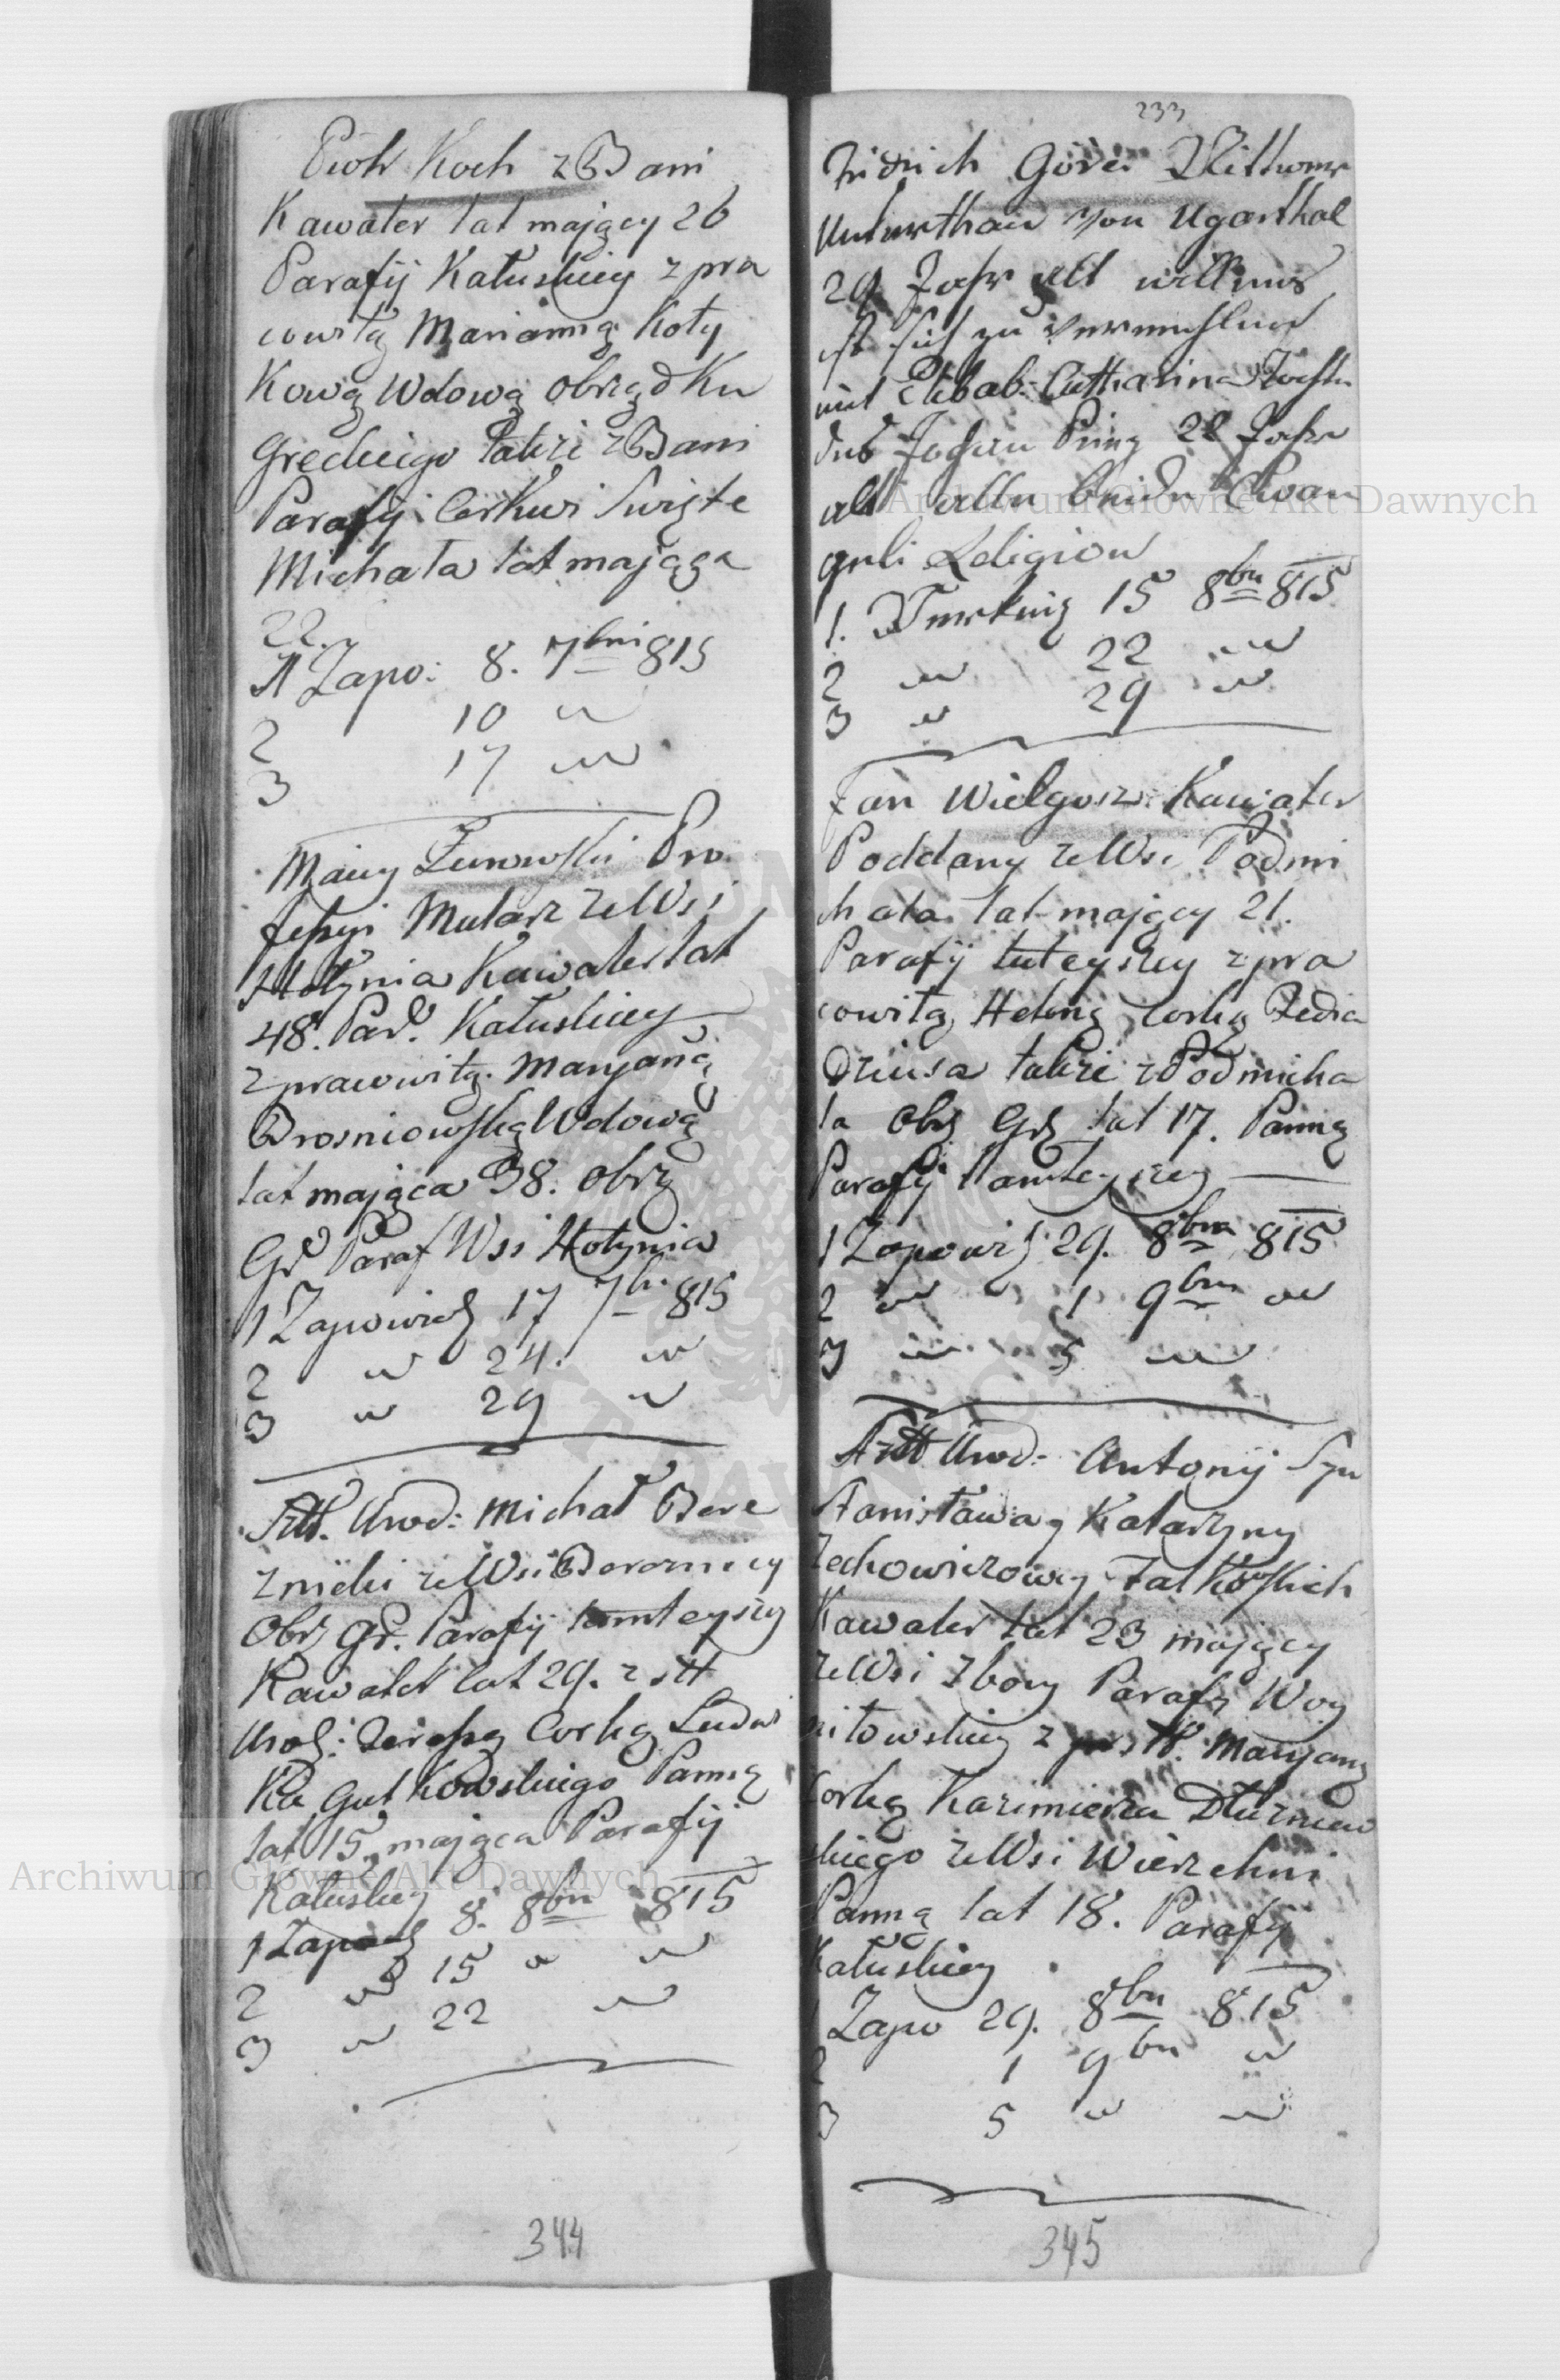 Piotr Koch z Bani
Kawaler lat mający 26
Parafij Kałuskiey z pra
cowitą Marianną Koty
Kową Wdową obrządku
Greckiego także z Bani
Parafij Cerkwi Swięte
Michała lat mająca
22.
1 Zapo: 8. 7bris 815
2 10 "
3 17 "
Maciy Żurowski Pro
fessyi Mularz ze Wsi
Hołynia Kawaler lat
48. Par. Kałuskiey
z pracowitą Maryaną
Brosniowską Wdową
lat mająca 38. obrz
Gr Paraf Wsi Hołynia
1 Zapowiedź 17 7br 815
2 " 24. "
3 " 29 "
Szl. Urod: Michał Bere
znicki ze Wsi Bereznicy
Obrz Gr. Parafij tamteyszy
Kawaler lat 29. z szl
Urodz: Teressą Corką Ludwi
Ka Gutkowskiego Panną
lat 15 mająca Parafij
Kałuskiey
1 Zapow 8. 8bra 815
2 " 15 " "
3 " 22 "
344
233
Fridrich Wittwer
Unterthan von Ugartsthal
29 Jahr alt willens
ist sich zu vermehlen
mit Elisab: Catharina Tochter
des Johan 22 Jahr
alt alle beide Evan
geli Religion
1. Verking 15 8br 815
2 " 22 "
3 " 29 "
Jan Wielgosz Kawaler
Poddany ze Wsi Podmi
chała lat mający 21.
Parafij tuteyszey z pra
cowitą Heleną Corką Fedia
Dziusa także z Podmicha
ła Obrz Grz lat 17. Panną
Parafij tamteyszey
1 Zapowiedź 29. 8bra 815
2 " 1 9bra "
3 " 5 "
Szl Urod: Antonij Syn
Stanisława y Katarzyny
Zechowiczowey Fatkowskich
Kawaler lat 23 mający
ze Wsi Zbory Parafij Woy
niłowskiey z szl. Maryaną
Corką Kazimierza Dłużniew
skiego ze Wsi Wierzchni
Panną lat 18. Parafij
Kałuskiey
1 Zapo 29. 8br 815
2 1 9br "
3 5 " "
345
Archiwum Główne Akt Dawnych
Archiwum Główne Akt Dawnych